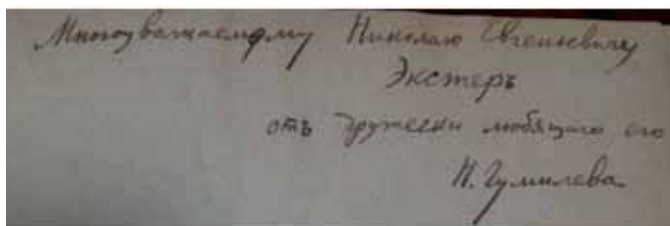 Многоуважаемому Николаю Евгеньевичу
Экстеръ
отъ дружески любящаго его
Н. Гумилева.